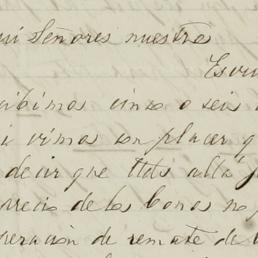 Señores nuestro
cibimos cinco o seis
vimos con placer q
decir que Uds allá
precio de los bonos no
peracion de remate de